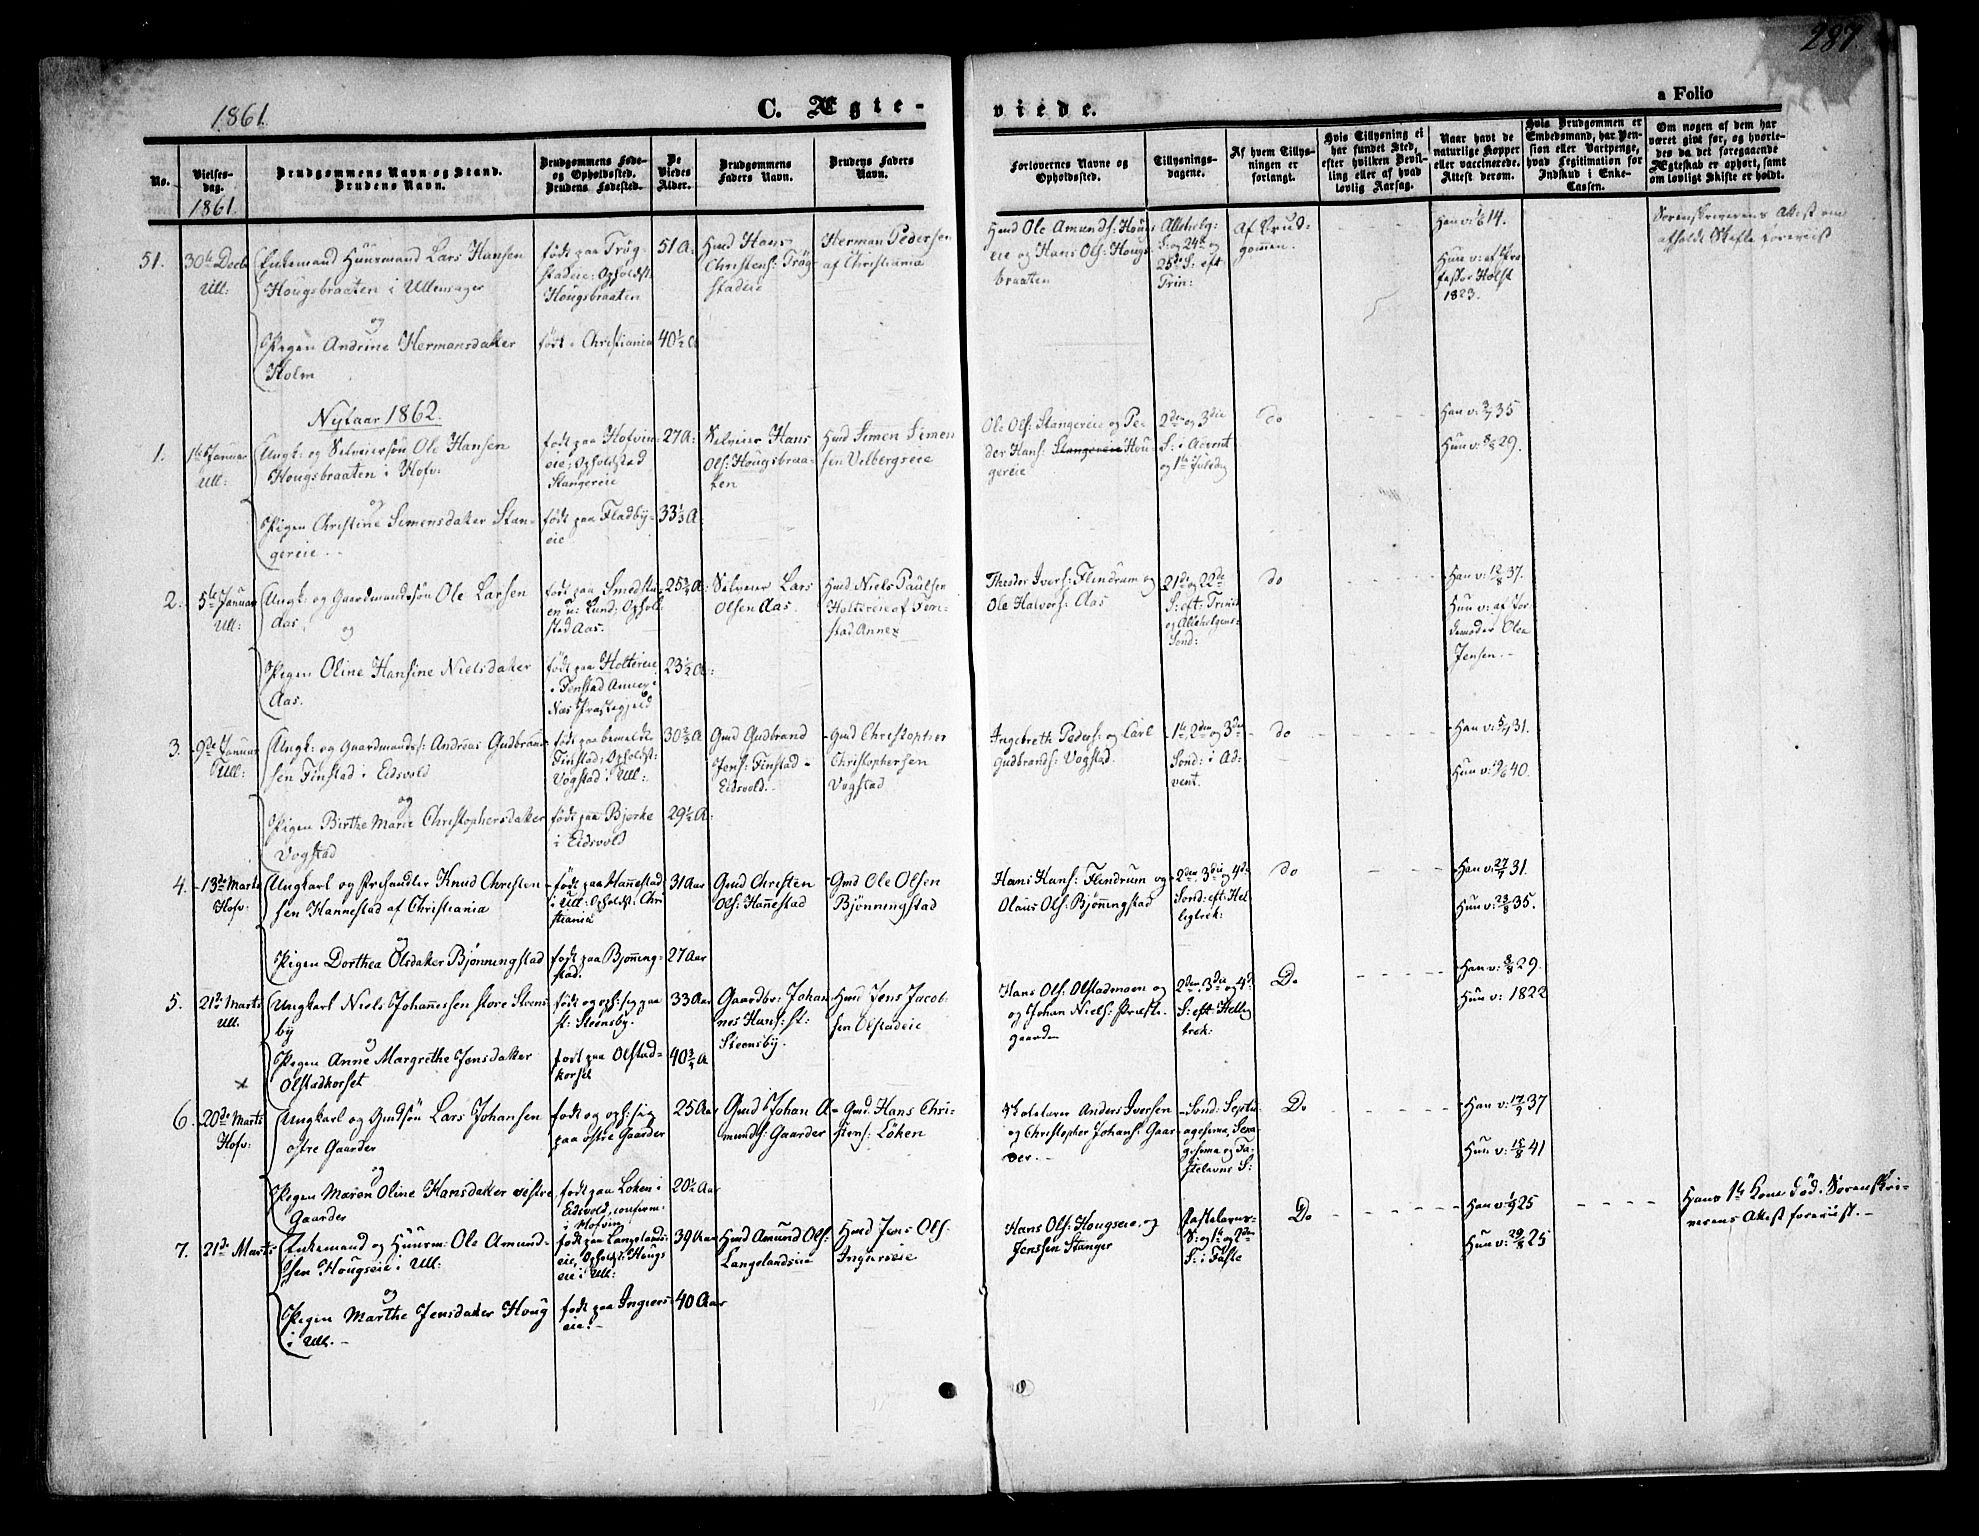 287
1861.
C. Ægte-
viede.
a Folio
No.
Vielses-
dag.
1861.
Brudgommens Navn og Stand.
Brudens Navn.
Brudgommens Føde-
og Opholdssted.
Brudens Fødested.
De
Viedes
Alder.
Brudgommens
Faders Navn.
Brudens Faders
Navn.
Forlovernes Navne og
Opholdssted.
Tillysnings-
dagene.
Af hvem Tillys-
ningen er
forlangt.
Hvis Tillysning ei
har fundet Sted,
efter hvilken Bevil-
ling eller af hvad
lovlig Aarsag.
Naar havt de
naturlige Kopper
eller vaccinerede.
Attest derom.
Hvis Brudgommen er
Embedsmand, har Pen-
sion eller Vartpenge,
hvad Legitimation for
Indskud i Enke-
Cassen.
Om nogen af dem har
været givt før, og hvorle-
des da det foregaaende
Ægteskab er ophørt, samt
om lovligt Skifte er holdt.
51.
30te Decb
Ull:
Enkemand Huusmand Lars Hansen
Hougsbraaten i Ullensager
og
Pigen Andrine Hermansdatter
Holm
født paa Trøg-
stadeie; Opholdst:
Hougsbraaten
født i Christiania
51 A:
40½ A
Hmd Hans
Christens: Trøg-
stadeie
Herman Pedersen
af Christiania
Hmd Ole Amunds: Hougs-
eie og Hans Ols: Hougs-
braaten
Allehelg:
S: og 24de og
25de S: eft
Trin:
Af Brud-
gommen.
Han v: 14.
Hun v: af Pro-
fessor Holst
1823.
Sorenskriverens Attest om
afholdt Skifte foreviist
Nytaar 1862.
1.
1ste Januar
Ull:
Ungk: og Selveiersøn Ole Hansen
Hougsbraaten i Hofv:
og
Pigen Christine Simensdatter Stan-
gereie
født paa Hofvin-
eie; Opholdsted
Stangereie
født paa Fladby-
eie
27 A:
33⅓ A:
Selveier Hans
Ols: Hougsbraa-
ten
Hmd Simen Simen
sen Velbergseie
Ole Ols: Stangereie og Pe-
der Hans: Stangereie Hou-
gereie
2den og 3die
S: i Advent
og 1ste Juledag
do
Han v: 35
Hun v: 29.
2.
5te Januar
Ull:
Ungk: og Gaardmandssøn Ole Larsen
Aas.
og
Pigen Oline Hansine Nielsdatter
Aas.
født paa Smedstu-
en u: Lund; Ophold
sted Aas.
født paa Holtereie
i Fenstad Annex i
Næs Præstegjeld
25¾ A:
23½ A:
Selveier Lars
Olsen Aas.
Hmd Niels Paulsen
Holtereie af Fen-
stad Annex
Theodor Ivers: Flindrum og
Ole Halvors: Aas
21de og 22de
S: eft: Trinit
og Allehelgens-
Sond:
do
Han v: 12/8 37.
Hun v: af Jor-
demoder Olea
Jensen.
3.
9de Januar
Ull:
Ungk: og Gaardmands: Andreas Gudbrand-
sen Finstad i Eidsvold
og
Pigen Birthe Marie Christophersdatter
Vogstad
født paa bemeldte
Finstad; Opholdst:
Vogstad i Ull:
født paa Bjerke
i Eidsvold
30¾ A
29½ A:
Gmd Gudbrand
Jens: Finstad
Eidsvold.
Gmd Christopher
Christophersen
Vogstad
Ingebreth Peders: og Carl
Gudbrands: Vogstad.
1ste, 2den og 3die
Sond: i Ad-
vent.
do
Han v: 31.
Hun v: 40.
4.
13de Marts
Hofv:
Ungkarl og Prehandler Knud Christen-
sen Hannestad af Christiania
og
Pigen Dorthea Olsdatter Bjønningstad
født paa Hannestad
i Ull: Opholdst: Chri-
stiania
født paa Bjønning-
stad.
31 Aar
27 Aar
Gmd Christen
Ols: Hannestad
Gmd Ole Olsen
Bjønningstad
Hans Hans: Flindrum og
Olaus Ols: Bjønningstad
2den, 3die og 4de
Sond: eft: Hel-
ligtrek:
do
Han v: 31.
Hun v: 35.
5.
21de Marts
Ull.
Ungkarl Niels Johannessen store Steens-
by
og
Pigen Anne Margrethe Jensdatter
Olstadkorset
født og oph: sig paa
st: Steensby.
født paa Olstad-
korset
33 Aar
40¾ A
Gaardbr: Johan-
nes Hans: st:
Steensby.
Hmd Jens Jacob-
sen Olstadeie
Hans Ols: Olstadmoen og
og Johan Niels: Præste-
gaarden
2den, 3die og 4de
S: eft: Hellig
trek:
Do
Han v: 29.
Hun v: 1822
6.
20de Marts
Hofv:
Ungkarl og Gmdsøn Lars Johansen
østre Gaarder
og
Pigen Maren Oline Hansdatter vestre
Gaarder
født og oph: sig
paa østre Gaarder
født paa Løken i
Eidsvold, confirm.
i Hofvin
25 Aar
20½ Aar
Gmd Johan A-
munds: Gaarder
Gmd. Hans Chri-
stens: Løken
Skolelærer Anders Iversen
og Christopher Johans: Gaar-
der.
Sond: Septu-
agesima, Sexa-
gesima og Fa-
stelavns S:
Do
Han v: 17/9 37
Hun v: 15/8 41
7.
21de Marts
Enkemand og Huusm: Ole Amund-
sen Hougseie i Ull:
og
Pigen Marthe Jensdatter Houg
i Ull.
født paa Langelands-
eie, Opholdst: Hougs
eie i Ull:
født paa Ingiers-
eie.
39 Aar
40 Aar
Hmd Amund Ols:
Langelandseie
Hmd Jens Ols:
Ingierseie
Hans Ols: Hougseie og
Jenssen Stanger
Fastelavns-
S: og 1ste og 2den
S: i Faste
Do
Han v: 25
Hun v: 25
Hans 1ste Kone død. Sorenskri-
verens Attest foreviist.